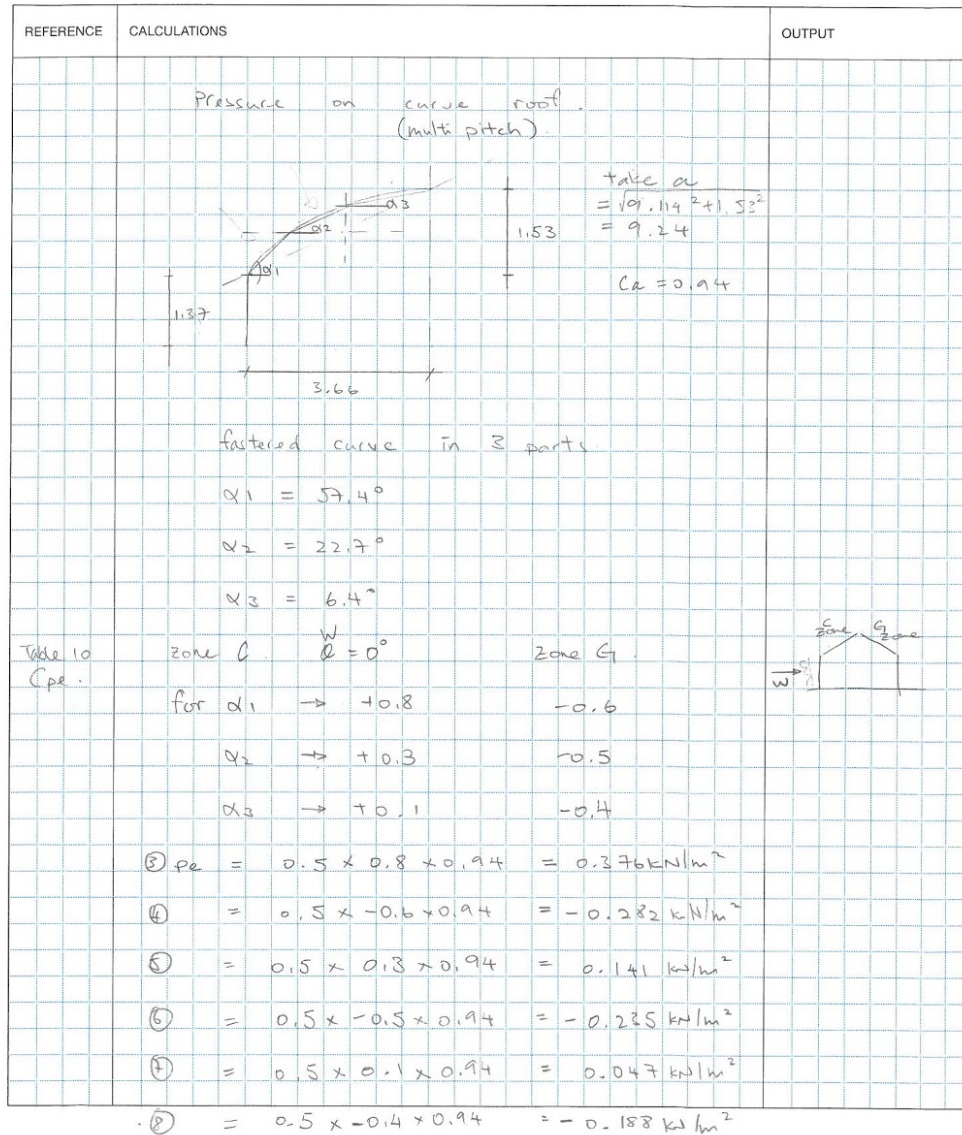 REFERENCE CALCULATIONS OUTPUT
Pressure on curve roof.
(multi pitch).
take a
= √9.114²+1.53²
= 9.24
Ca = 0.94
α3
α2
α1
1.53
1.37
3.66
fastered curve in 3 parts
α1 = 57.4°
α2 = 22.7°
α3 = 6.4°
Table 10
Cpe.
zone C. W = 0° zone G.
for α1 → +0.8 -0.6
α2 → +0.3 -0.5
α3 → +0.1 -0.4
C zone G zone
W
③ pe = 0.5 × 0.8 × 0.94 = 0.376 kN/m²
④ = 0.5 × -0.6 × 0.94 = -0.282 kN/m²
⑤ = 0.5 × 0.3 × 0.94 = 0.141 kN/m²
⑥ = 0.5 × -0.5 × 0.94 = -0.235 kN/m²
⑦ = 0.5 × 0.1 × 0.94 = 0.047 kN/m²
⑧ = 0.5 × -0.4 × 0.94 = -0.188 kN/m²